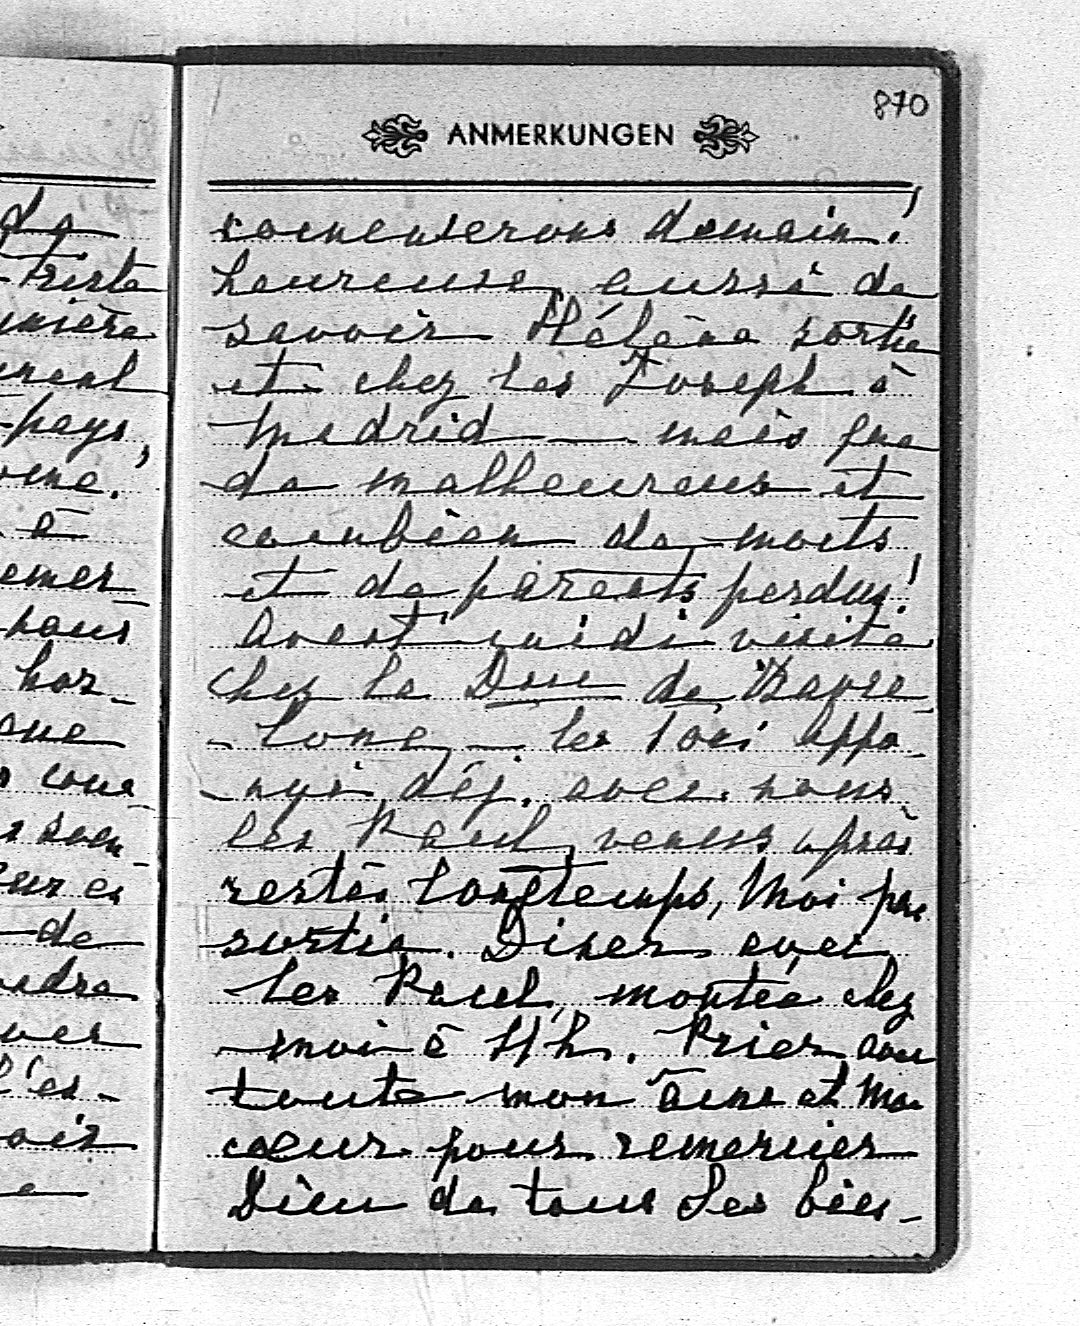 870
ANMERKUNGEN
comenserons demain!
heureuse, aussi de
savoir Hélène sortie
et chez les Joseph à
Madrid — mais que
de malheureux et
combien de morts
et de parents perdus!
Avant midi visite
chez la Duc de
- lone, — les Toni Appo-
- nyi, déj. avec nous
les Paul, venus après
restés longtemps, Moi pas
sortie. Diner avec
les Paul, montée chez
moi à 11h. Prier avec
toute mon âme et mon
cœur pour remercier
Dieu de tous Ses bien-
de
triste
pays,
à
emer-
nous
hor-
que
de
l'es-